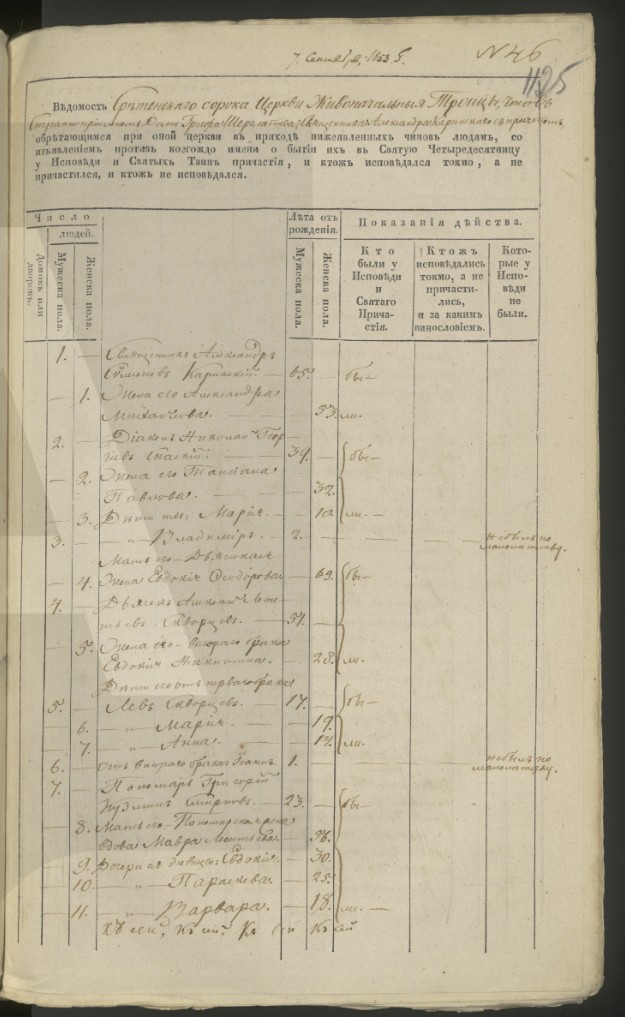 7. Сентяб, 1853 г.
№ 46
1125
Вѣдомость Срѣтенскаго сорока Церкви Живоначальныя Троицы, что въ
Странопріимномъ Домѣ Графа Шереметева Священника Александра съ причтомъ
обрѣтающимся при оной церкви въ приходѣ нижеявленныхъ чиновъ людямъ, со
изъявленіемъ противъ коегождо имени о бытіи ихъ въ Святую Четыредесятницу
у Исповѣди и Святыхъ Таинъ причастія, и ктожъ исповѣдался токмо, а не
причастился, и ктожъ не исповѣдался.
Число
людей.
Домовъ или
дворовъ.
Мужеска пола.
Женска пола.
Лѣта отъ
рожденія.
Мужеска пола.
Женска пола.
Показанія дѣйства.
Кто
были у
Исповѣди
и
Святаго
Прича-
стія.
Ктожъ
исповѣдались
токмо, а не
причасти-
лись,
и за какимъ
винословіемъ.
Кото-
рые у
Испо-
вѣди
не
были.
1. — Священникъ Александръ
65. — бы—
— 1. Жена его Александра
Михайлова. — 53. ли.
2. — Діаконъ Николай Геор-
гіевъ Спаскій. — 39. — бы—
— 2. Жена его Татіана
Павлова. — 32.
— 3. Дѣти ихъ: Марія. — 10. ли.—
3. — „ Владиміръ. — 2. — не былъ по
малолѣтству.
Мать его — Дьяческая
— 4. жена Евдокія Ѳеодорова — 69. бы—
4. — Дьячекъ Алексѣй
Скворцевъ. — 51. —
— 5. Жена его — втораго брака
Евдокія Никитина. — 28. ли.
Дѣти его отъ перваго брака
5. — Левъ Скворцевъ. — 17. — бы—
— 6. „ Марія. — 19.
— 7. „ Анна. — 14. ли.—
6. — отъ втораго брака Іоаннъ 1. — не былъ по
малолѣтству.
7. — Пономарь Григорій
Кузминъ Смирновъ. — 23. — бы—
— 8. Мать его — Пономарская жена
вдова Мавра — 56.
— 9. Дочери ея дѣвицы: Евдокія. — 30.
— 10. „ Параскева — 25.
— 11. „ Варвара. — 18. ли.—